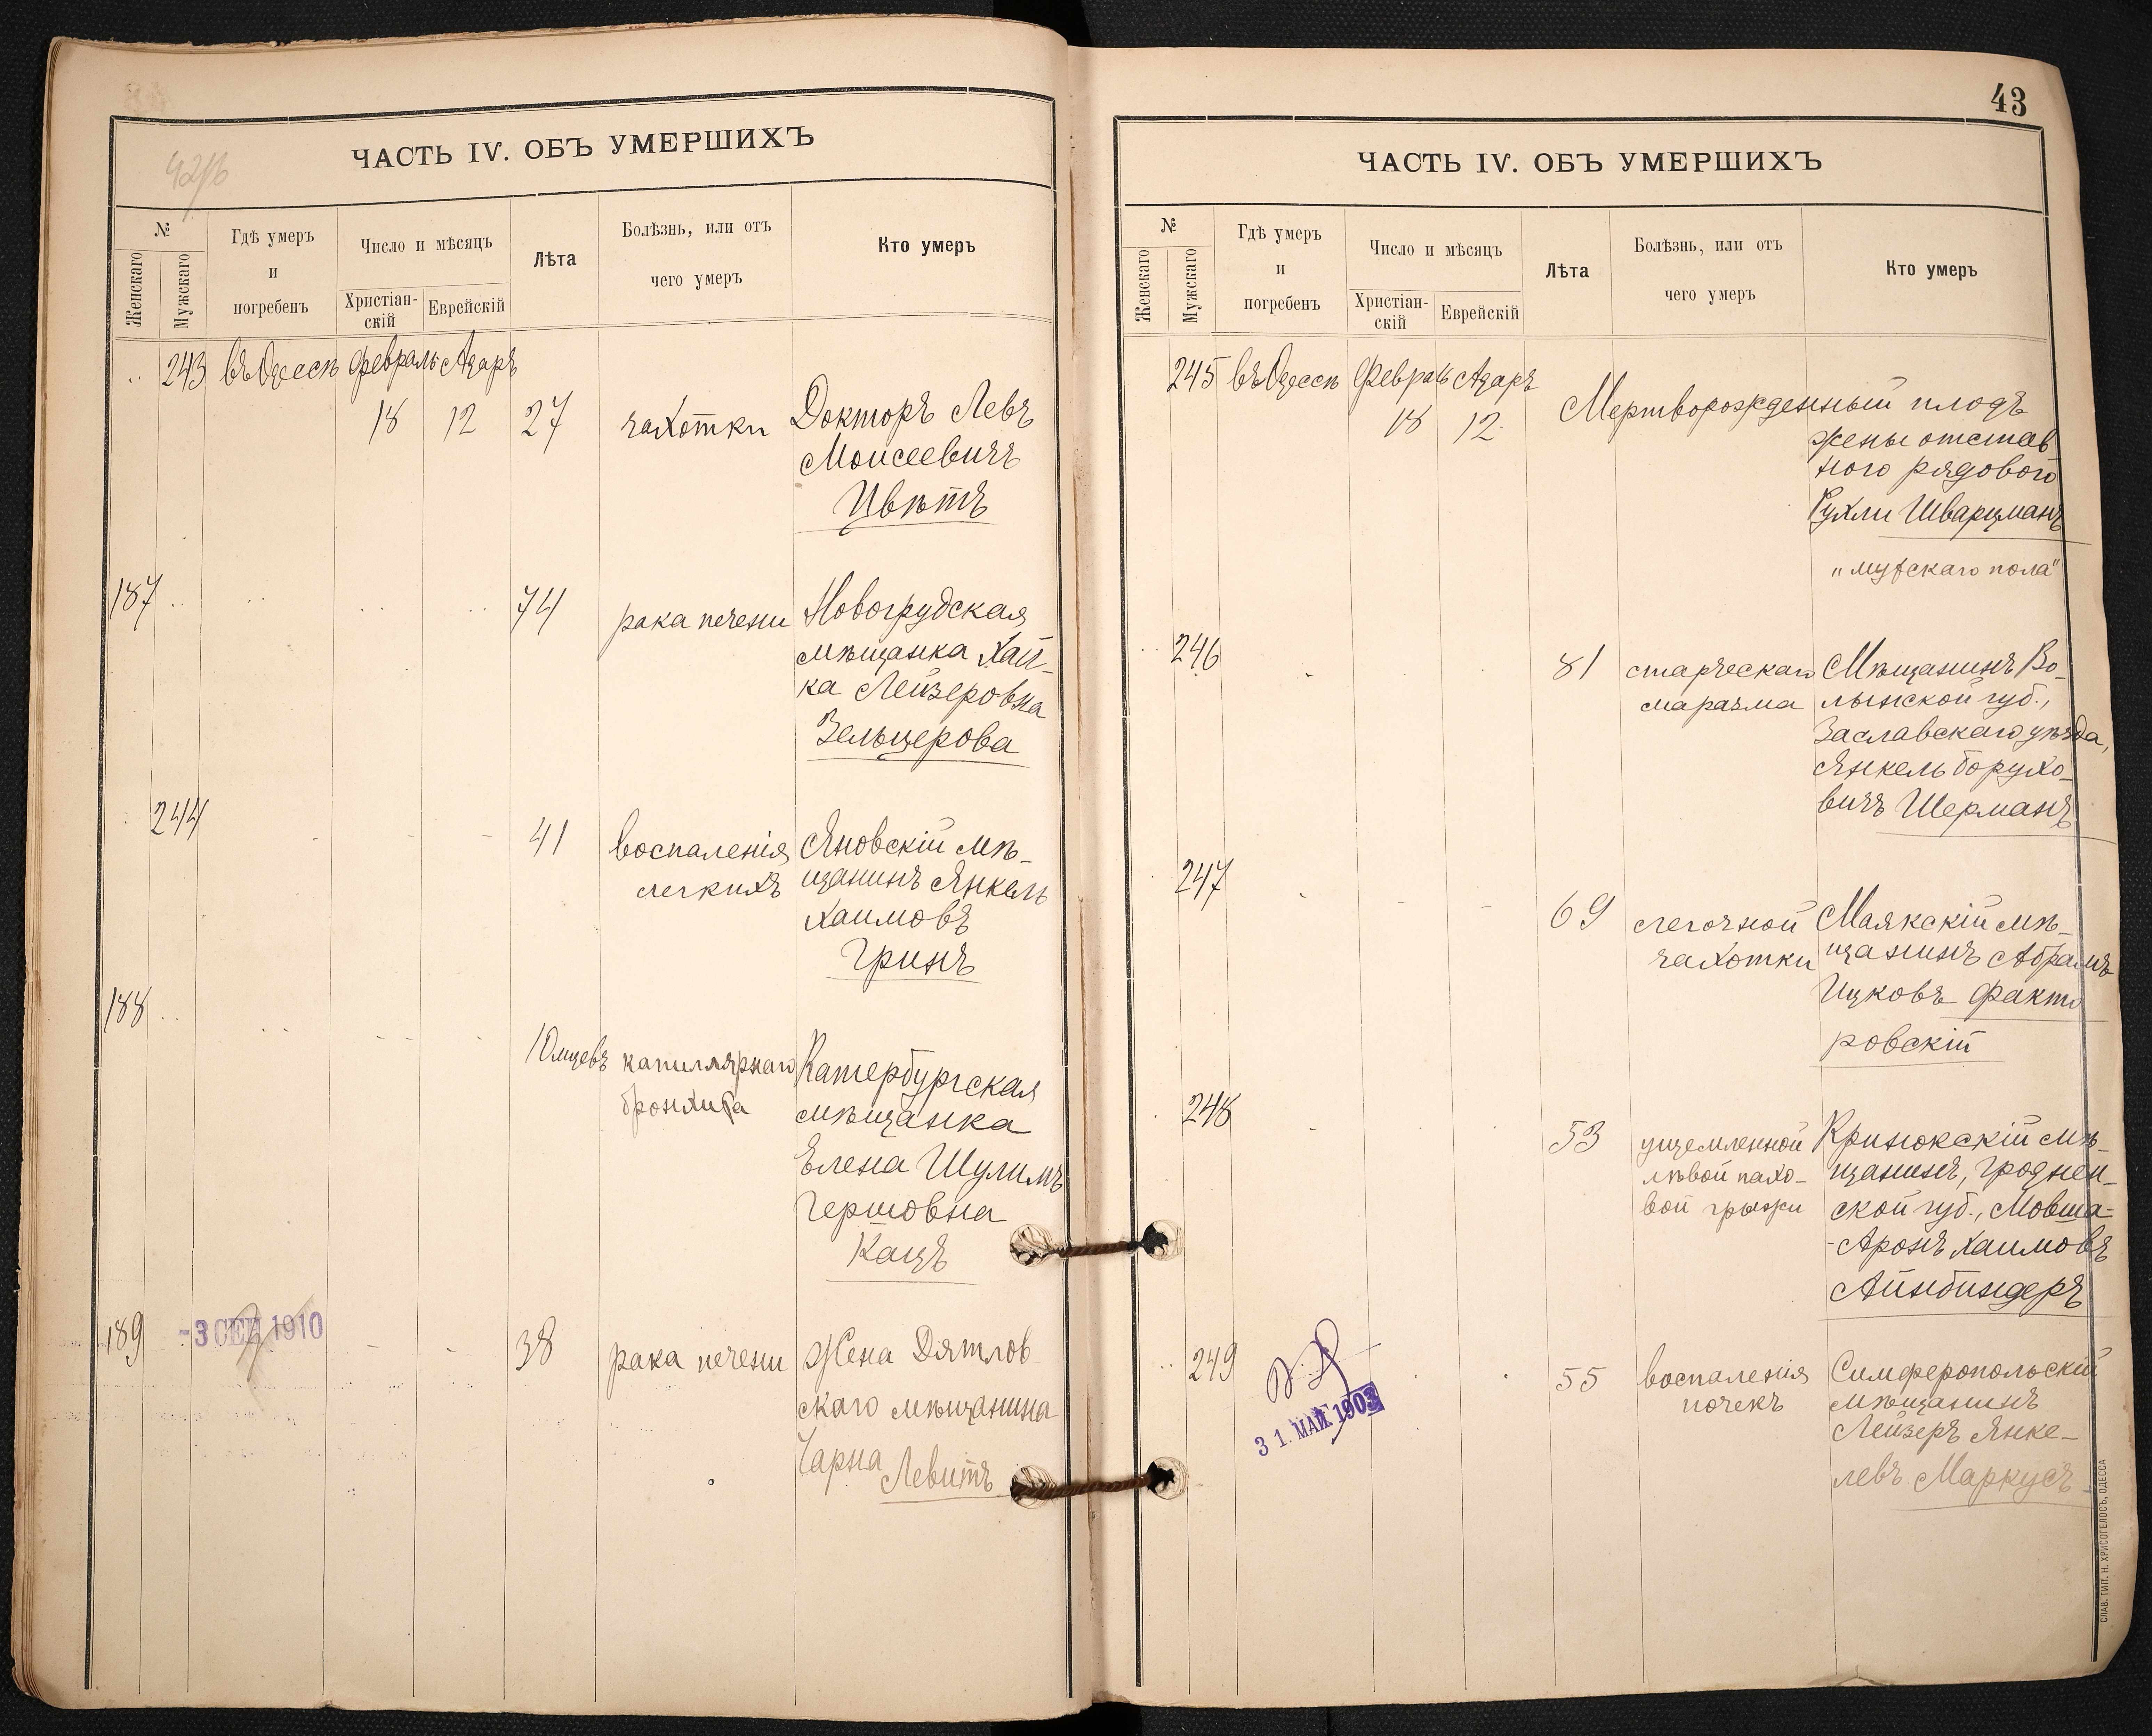 42/б
ЧАСТЬ IV. ОБЪ УМЕРШИХЪ
№
Женскаго
Мужскаго
Гдѣ умеръ
и
погребенъ
Число и мѣсяцъ
Христіан-
скій
Еврейскій
Лѣта
Болѣзнь, или отъ
чего умеръ
Кто умеръ
243 въ Одессѣ Февраль Адаръ
18 12 27 чахотки Докторъ Левъ
Моисеевичъ
Цвѣтъ
187 74 рака печени Новогрудская
мѣщанка Хай-
ка Лейзеровна
Зельцерова
244 41 воспаленія Яновскій мѣ-
легкихъ щанинъ Янкель
Хаимовъ
Гринъ
188
10 мцевъ капиллярнаго Катербургская
бронхита мѣщанка
Елена Шулимъ
Гершовна
Кацъ
189 -3 СЕН 1910 38 рака печени Жена Дятлов
скаго мѣщанина
Чарна Левитъ
43
ЧАСТЬ IV. ОБЪ УМЕРШИХЪ
№
Женскаго
Мужскаго
Гдѣ умеръ
и
погребенъ
Число и мѣсяцъ
Христіан-
скій
Еврейскій
Лѣта
Болѣзнь, или отъ
чего умеръ
Кто умеръ
245 въ Одессѣ Февраль Адаръ
18 12 Мертворожденный плодъ
жены отстав
ного рядового
Рухли Шварцманъ
"мужскаго пола"
246 81 старческаго Мѣщанинъ Во-
маразма лынской губ.,
Заславскаго уѣзда,
Янкель Борухо-
вичъ Шерманъ
247 69 легочной Маякскій мѣ-
чахотки щанинъ Абрамъ
Ицковъ Факто
ровскій
248 53 ущемленной Кринокскій мѣ-
лѣвой пахо- щанинъ, Гроднен-
вой грыжи ской губ., Мовша-
-Аронъ Хаимовъ
Айнбиндеръ
249 55 воспаленія Симферопольскій
почекъ мѣщанинъ
31. МАЙ 1903 Лейзеръ Янке-
левъ Маркусъ
СЛАВ. ТИП. Н. ХРИСОГЕЛОСЪ, ОДЕССА